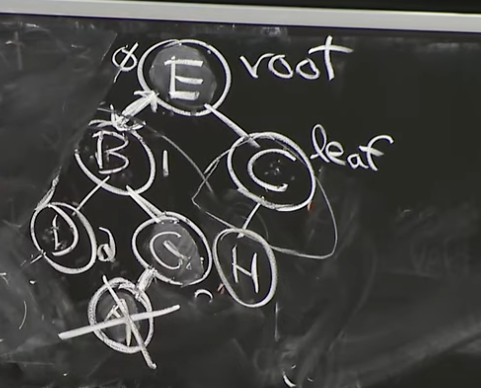 E root
B 1 C leaf
D d G H